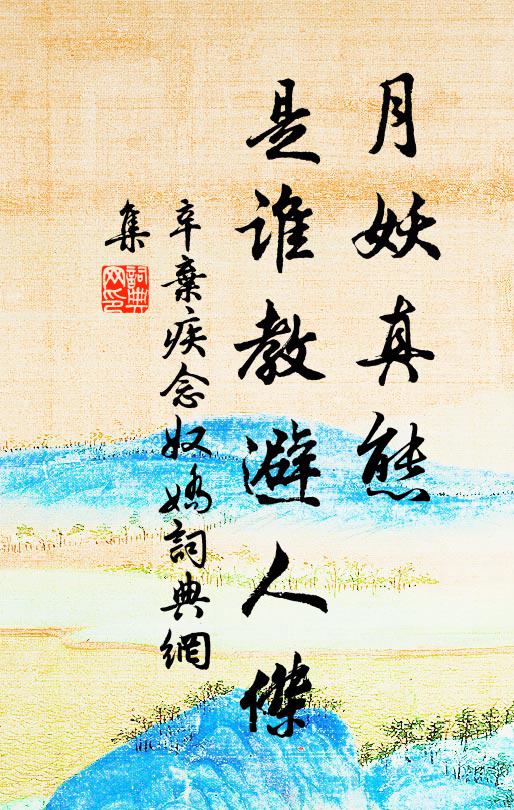 月妖真態
是誰教避人傑
辛棄疾念奴嬌詞典網
集
詞典網印